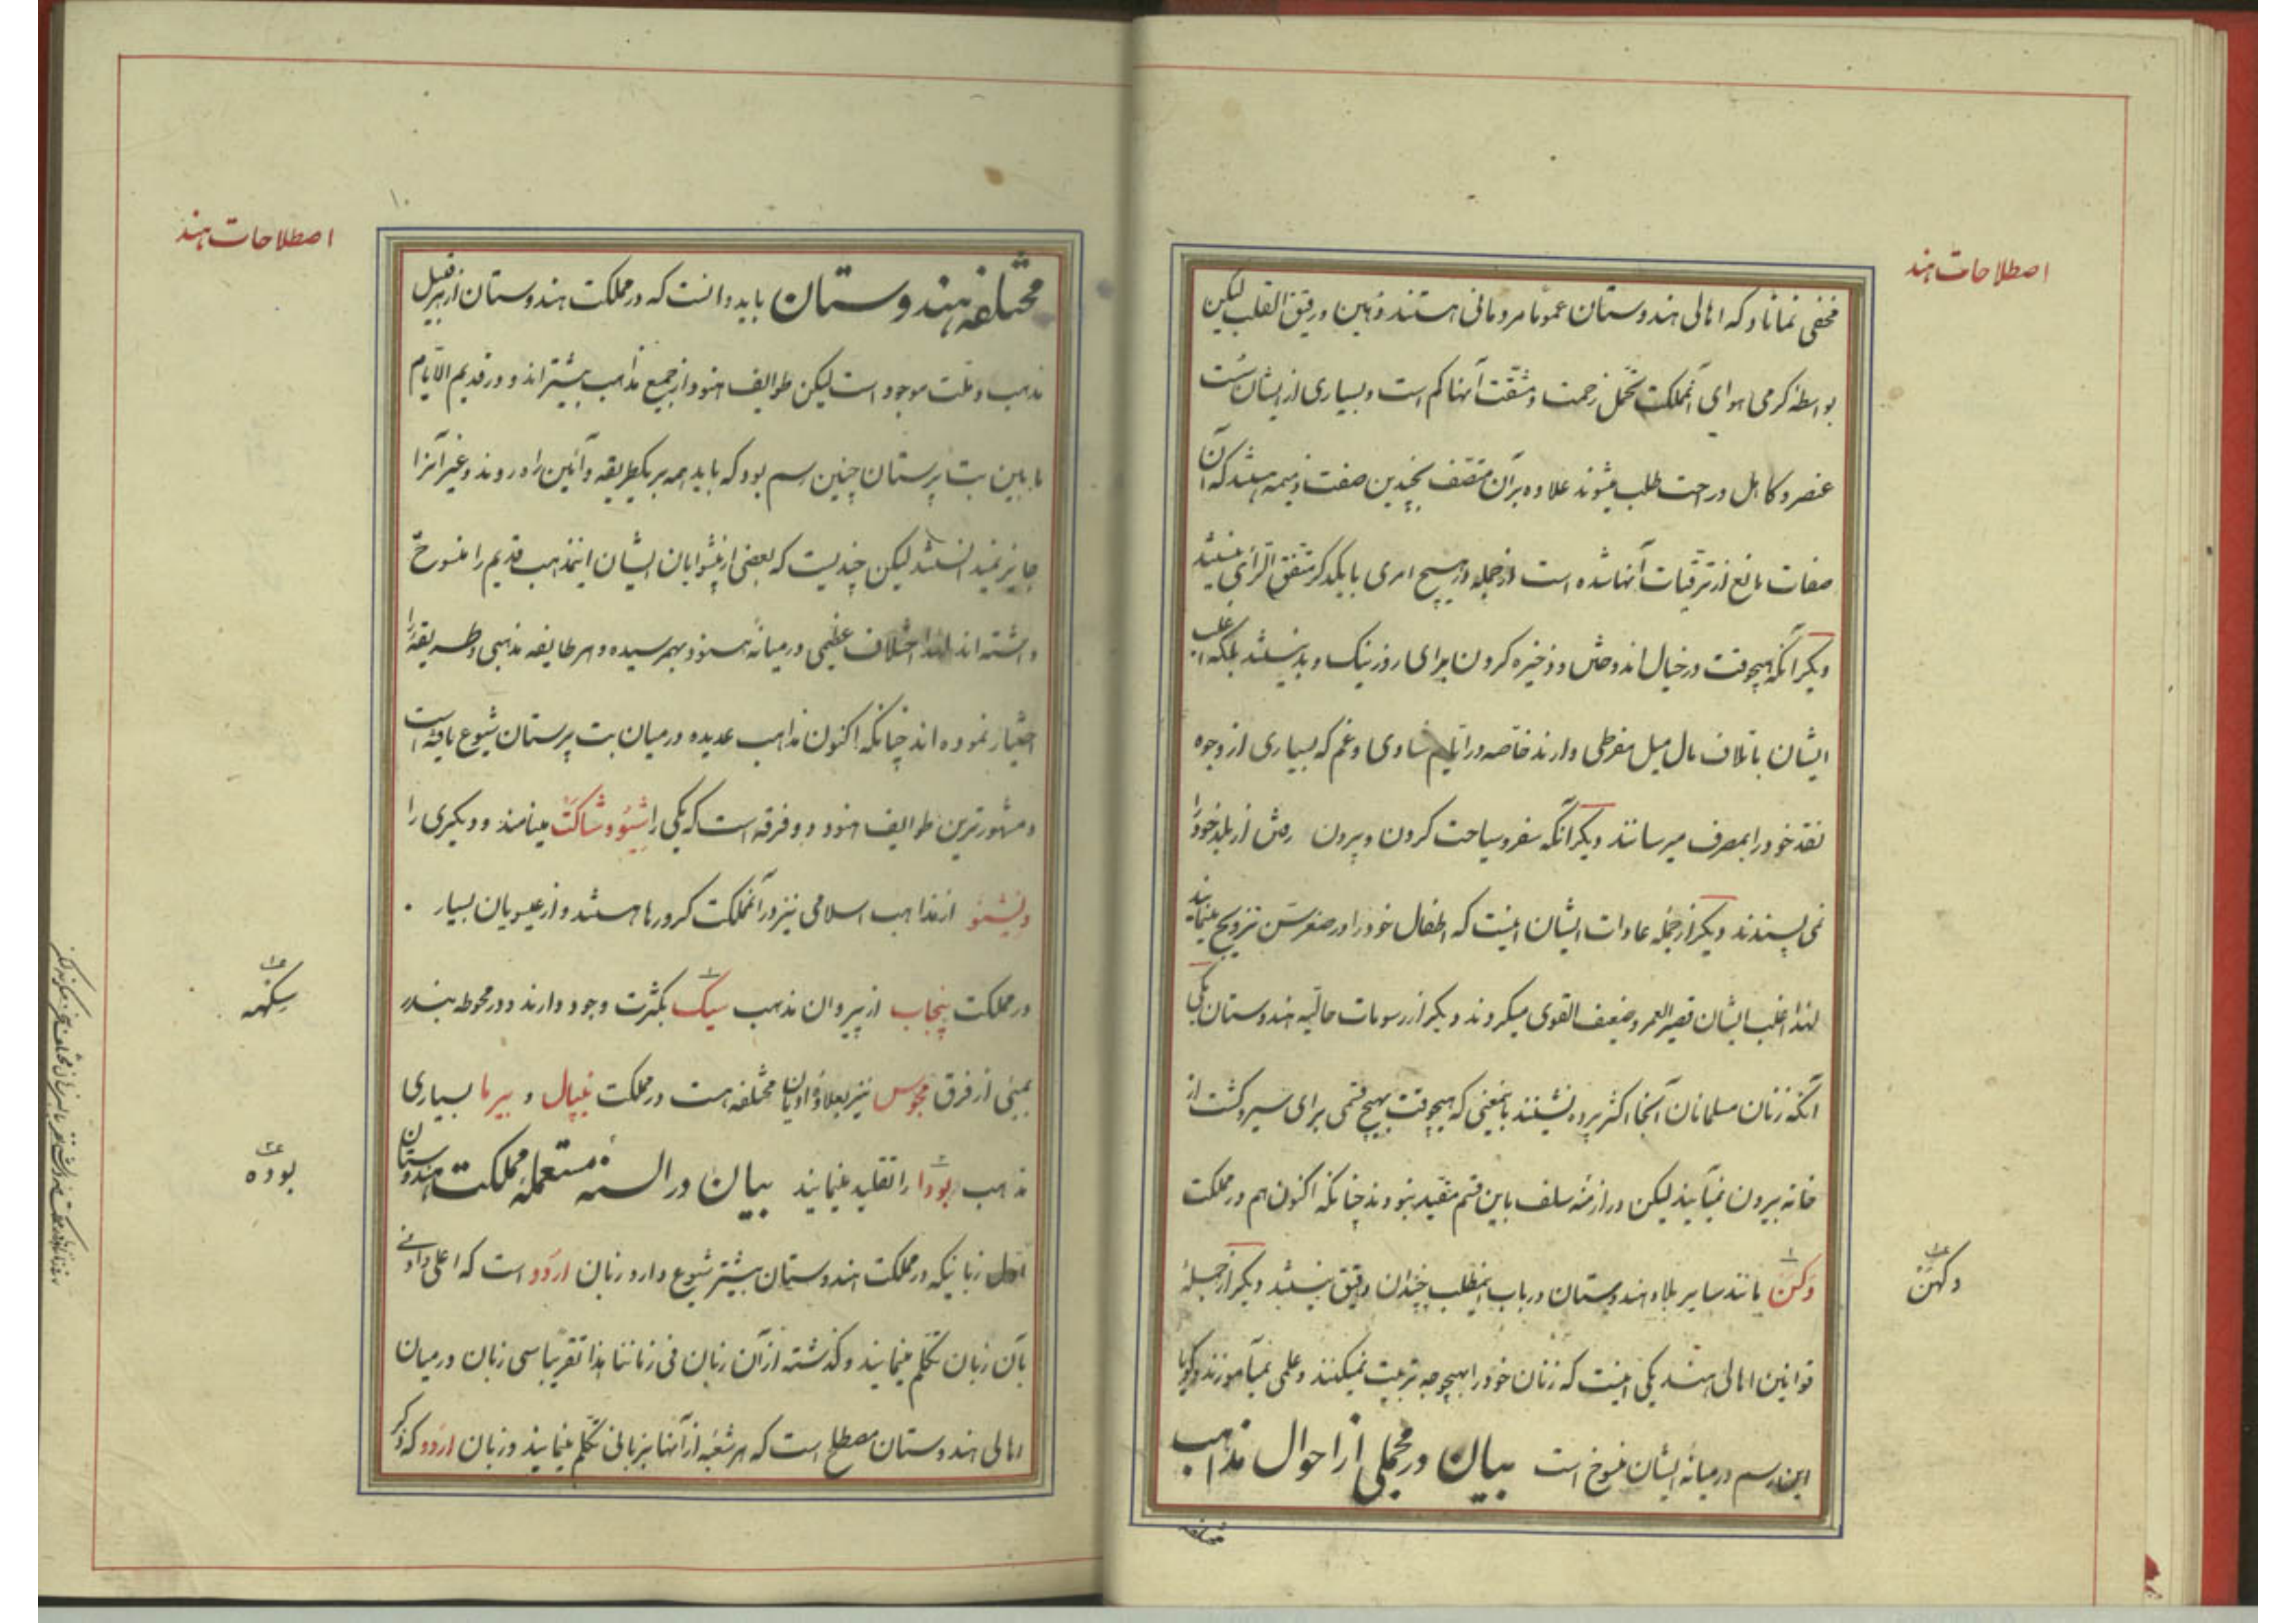 اصطلاحات هند
مخفی نماناد که اهالی هندوستان عموما مردمانی هستند ذهین و رقیق القلب لیکن
بواسطهٔ کرمی هوای آنمملکت تحمل زحمت و مشقت آنها کم است و بسیاری از ایشان سست
عنصر و کاهل و راحت طلب میشوند علاوه بر آن متصف بچندین صفت ذمیمه هستند که آن
صفات مانع از ترقیات آنها شده است از جمله در هیچ امری با یکدکر متفق الرّای نیستند
دیکر آنکه هیچوقت در خیال اندوختن و ذخیره کردن برای روز نیک و بد نیستند بلکه اغلب
ایشان باتلاف مال میل مفرطی دارند خاصّه در ایّام شادی و غم که بسیاری از وجوه
نقد خود را بمصرف میرسانند دیکر آنکه سفر و سیاحت کردن و بیرون رفتن از بلد خود را
نمی پسندند دیکر از جمله عادات ایشان اینست که اطفال خود را در صغر سن تزویج مینمایند
لهذا اغلب ایشان قصیر العمر و ضعیف القوی میکردند دیکر از رسومات حالیه هندوستان یکی
آنکه زنان مسلمانان آنجا اکثر پرده نشینند بمعنی که هیچوقت بهیچ قسمی برای سیر و کشت از
خانه بیرون نمیآیند لیکن در ازمنهٔ سلف باین قسم مقید نبودند چنانکه اکنون هم در مملکت
دکن مانند سایر بلاد هندوستان در باب اینمطلب چندان دقیق نیستند دیکر از جملهٔ
دکهن
قوانین اهالی هند یکی اینست که زنان خود را بهیچوجه تربیت نمیکنند و علمی نمیآموزند و کویا
این رسم در میانهٔ ایشان منسوخ است بیان در مجملی از احوال مذاهب
مختلفه
اصطلاحات هند
۱۰
مختلفه هندوستان باید دانست که در مملکت هندوستان از هر قبیل
مذهب و ملّت موجود است لیکن طوایف هنود از جمیع مذاهب بیشتراند و در قدیم الایّام
مابین بت پرستان چنین رسم بود که باید همه بر یکطریقه و آئین راه روند و غیر آنرا
جایز نمیدانستند لیکن چندیست که بعضی از پیشوایان ایشان اینمذهب قدیم را منسوخ
داشته اند لهذا اختلاف عظیمی در میانهٔ هنود بهم رسیده و هر طایفه مذهبی و طریقهٔ را
اختیار نموده اند چنانکه اکنون مذاهب عدیده در میان بت پرستان شیوع یافته است
و مشهورترین طوایف هنود دو فرقه است که یکی را شیو و شاکت مینامند و دیکری را
ویشنو از مذاهب اسلامی نیز در آنمملکت کرورها هستند و از عیسویان بسیار ۰
در مملکت پنجاب از پیروان مذهب سیک بکثرت وجود دارند و در محوطه بندر
سکهه
بمبئی از فرق مجوس نیز بعلاوهٔ ادیان مختلفه هست در مملکت نیپال و بیرما بسیاری
مذهب بودا را تقلید مینمایند بیان در السنهٔ مستعملهٔ مملکت هندوستان
بوده
اول زبانیکه در مملکت هندوستان بیشتر شیوع دارد زبان اردو است که اعلی و ادنی
بآن زبان تکلم مینمایند و کذشته از آن زبان فی زماننا هذا تقریبا سی زبان در میان
اهالی هندوستان مصطلح است که هر شعبهٔ از آنها بزبانی تکلم مینمایند و زبان اردو که ذکر